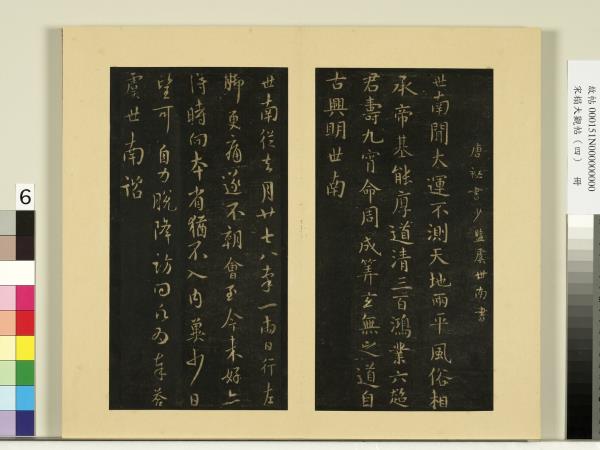 唐秘書少監虞世南書
世南聞大運不測天地兩平風俗相
承帝基能厚道清三百鴻業六超
君壽九霄命周成筭玄無之道自
古興明世南
世南從去月廿七八率一兩日行左
腳更痛遂不朝會至今未好亦
得時向本省猶不入內冀少日
望可自力脫降訪問願為奉答
虞世南諮
故帖000151N000000000
宋搨大觀帖(四) 冊
6